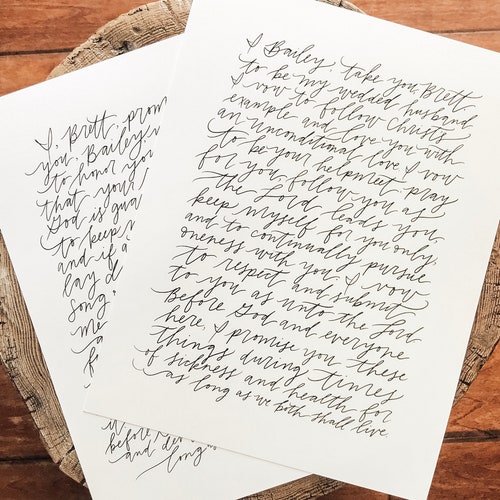 I, Brett, prom
you, Bailey,
to honor you
that your
God is gua
to keep
and if a
lay d
song,
me
a
f
it
before
and
long as
I Bailey, take you, Brett
to be my wedded husband
I vow to follow Christ's
example and love you with
an unconditional love. I vow
to be your helpmeet, pray
for you, follow you as
the Lord leads you,
keep myself for you only,
and to continually pursue
oneness with you. I vow
to respect and submit
to you as unto the Lord
Before God and everyone
here, I promise you these
things during times
of sickness and health for
as long as we both shall live.